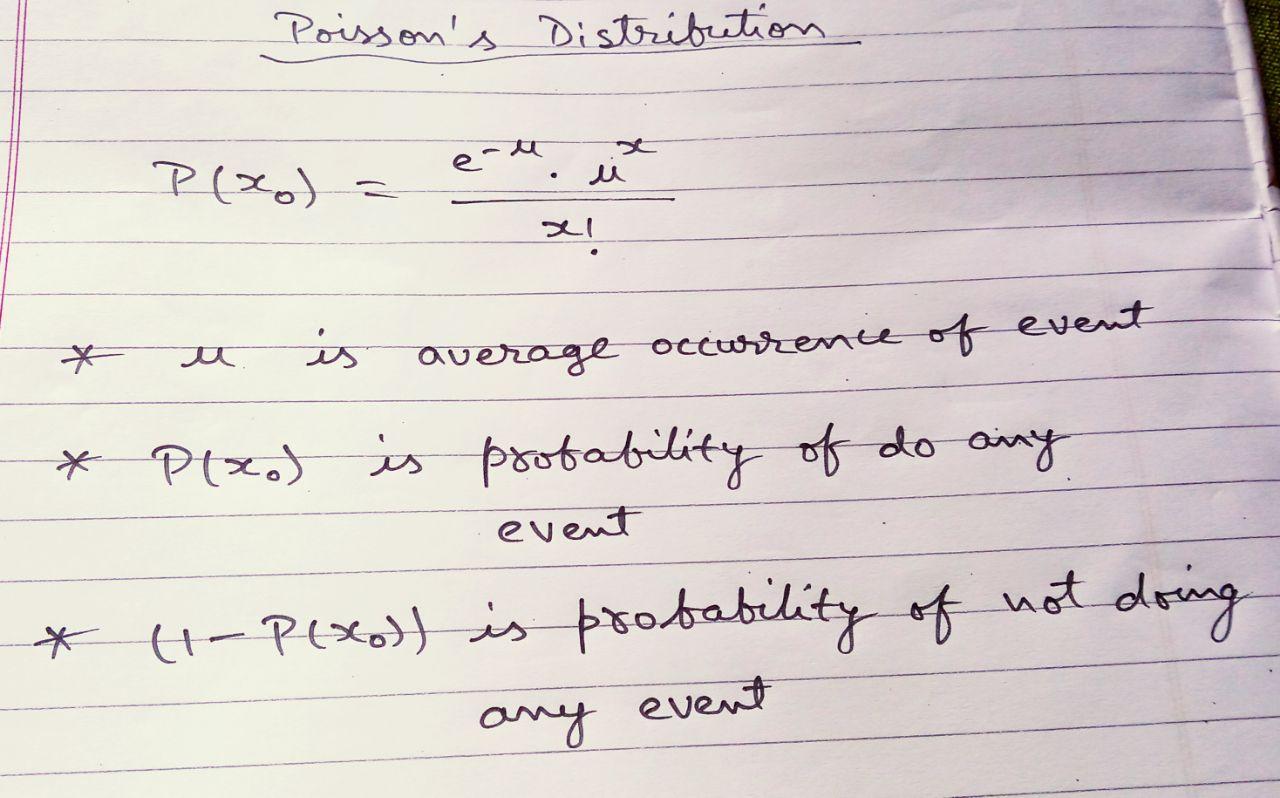 Poisson's Distribution
P(x₀) = e^-μ . μ^x / x!
* μ is average occurrence of event
* P(x₀) is probability of do any
event
* (1 - P(x₀)) is probability of not doing
any event